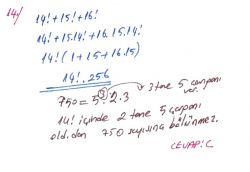 14/
14!+15!+16!
14!+15.14!+16.15.14!
14!(1+15+16.15)
14!.256
750=5³.2.3 → 3 tane 5 çarpanı var.
14! içinde 2 tane 5 çarpanı
old.dan 750 sayısına bölünmez.
CEVAP: C